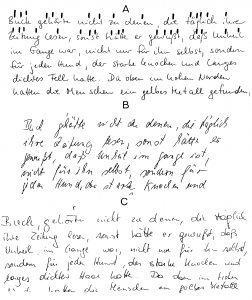 A
Buck gehörte nicht zu denen, die täglich ihre
Zeitung lesen, sonst hätte er gewußt, daß Unheil
im Gange war, nicht nur für ihn selbst, sondern
für jeden Hund, der starke Knochen und langes
dichtes Fell hatte. Da oben im hohen Norden
hatten die Menschen ein gelbes Metall gefunden,
B
nicht denen, die täglich
ihre Zeitung lesen, sonst hätte er
gewußt, daß Unheil im gange ist,
nicht für ihn selbst, sondern für
jeden Hund, die starke Knochen und
C
Buck, gehörte nicht zu denen, die täglich
ihre Zeitung lesen sonst hätte er gewußt, daß
Unheil im Gange war, nicht nur für ihn selbst,
sondern für jeden Hund, der starke Knochen und
langes dichtes Haar hatte. Da oben im hohen
die Menschen ein gelbes Metall